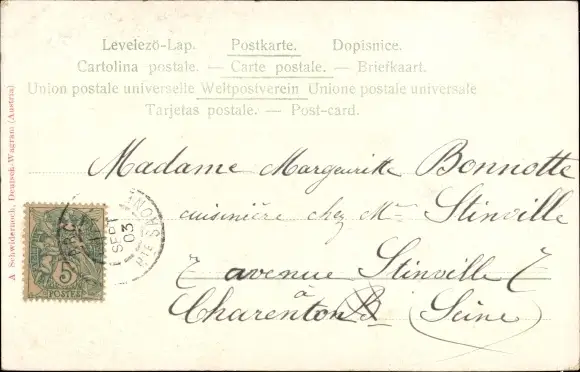 Levelező-Lap. Postkarte. Dopisnice.
Cartolina postale. — Carte postale. — Briefkaart.
Union postale universelle Weltpostverein Unione postale universale
Tarjetas postale. — Post-card.
A. Schwidernoch, Deutsch-Wagram (Austria)
Madame Margueritte Bonnotte
cuisinière chez Mme Stinville
7 avenue Stinville 7
à
Charenton (Seine)
SEPT
03
5
POSTES